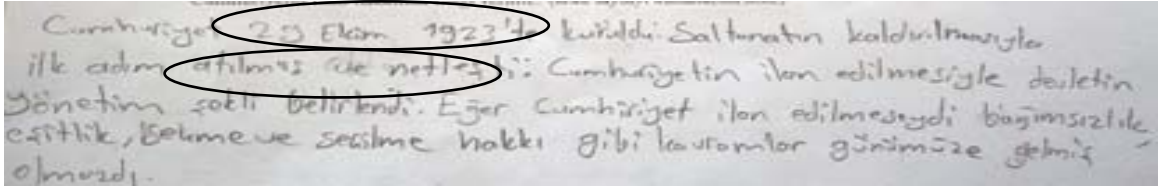 Cumhuriyet 29 Ekim 1923'te kuruldu. Saltanatın kaldırılmasıyla
ilk adım atılmış ve netleşti. Cumhuriyetin ilan edilmesiyle devletin
yönetim şekli belirlendi. Eğer Cumhiriyet ilan edilmeseydi bağımsızlık,
eşitlik, seçme ve seçilme hakkı gibi kavramlar günümüze gelmiş
olmazdı.